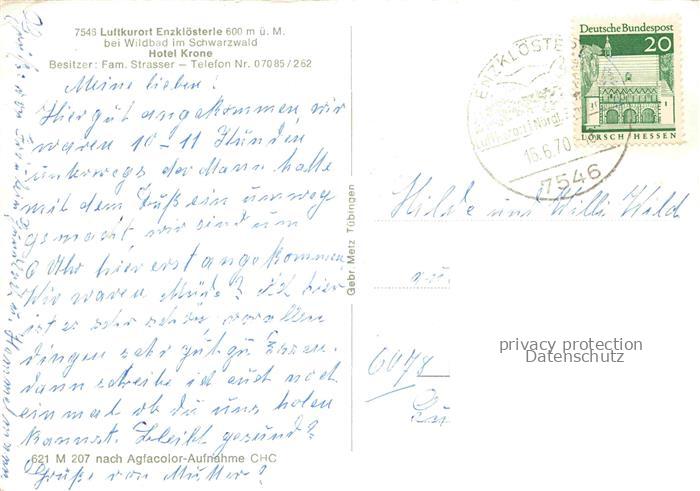 7546 Luftkurort Enzklösterle 600 m ü. M.
bei Wildbad im Schwarzwald
Hotel Krone
Besitzer: Fam. Strasser – Telefon Nr. 07085/262
Meine lieben!
Hier gut angekommen, wir
waren 10–11 Stunden
unterwegs der Mann hatte
mit dem Buß ein umweg
gemacht wir sind um
6 Uhr hier erst angekommen
Wir waren Müde? Ist hier
ist es sehr schön, vor allen
dingen sehr gut zu Essen.
dann schreibe ich auch noch
einmal ob du uns holen
kannst. Bleibt gesund?
Grüße von Mutter?
621 M 207 nach Agfacolor-Aufnahme CHC
Gebr. Metz Tübingen
Deutsche Bundespost
20
LORSCH/HESSEN
ENZKLÖSTERLE
16.6.70
7546
Hilde und Willi Wild
6078
privacy protection
Datenschutz